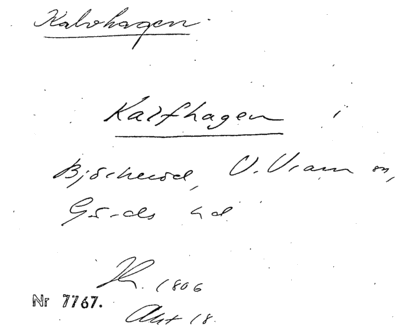 Kalvhagen.
Kalfhagen i
Björkeröd, V. Vram sn,
Gärds hd
1806
Nr 7767.
Akt 18.